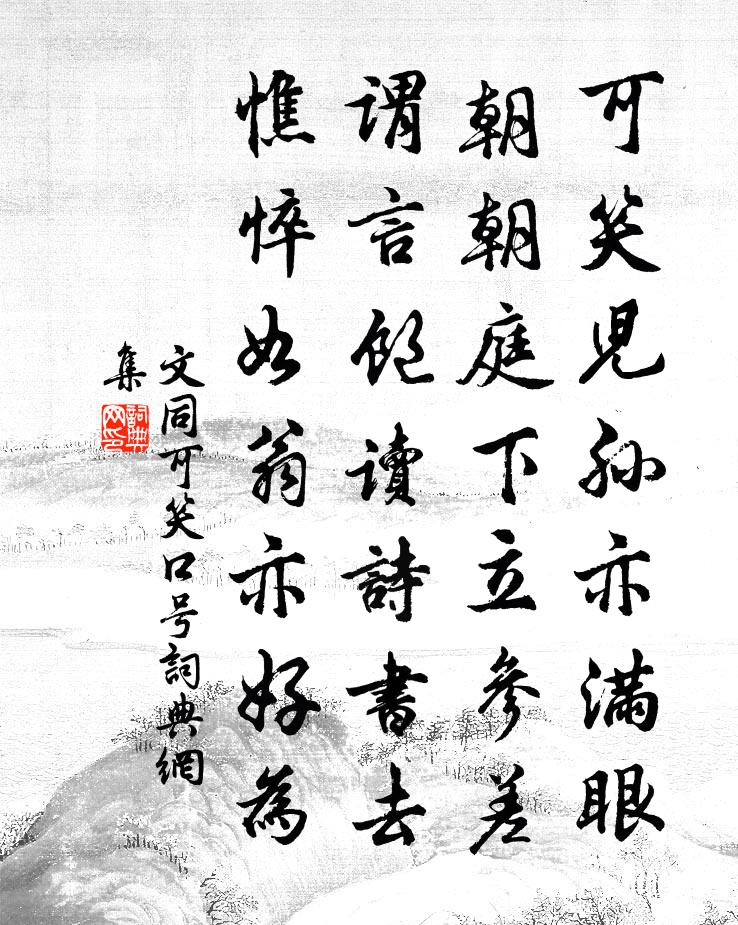 可笑児孫亦满眼
朝朝庭下立參差
谓言飽讀詩書去
憔悴如翁亦好為
文同可笑口号詞典網
集
詞典网印